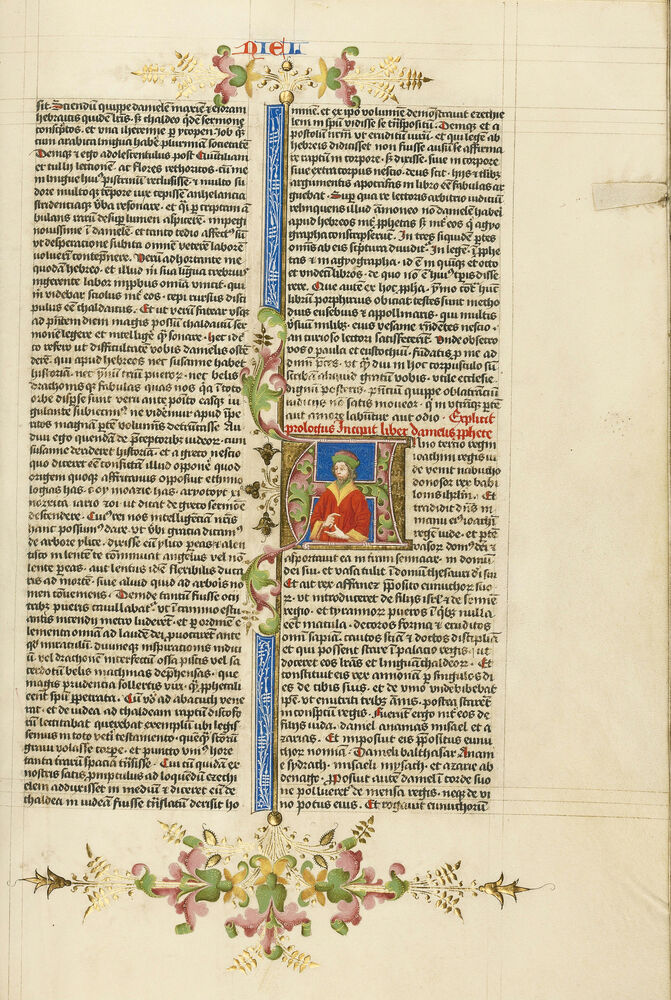 NIEL
sit. Sciendū quippe danielē maxīe & esdram
hebraicis quidē lrīs, sz chaldeo qdē sermone
conscriptos. et vnā iheremie
cum arabica lingua habere plurimā societatē
Deniqz & ego adolescentulus post Quintiliani
et tullii lectionē, ac flores rethoricos, cū me
in lingue huiꝰ pistrinū reclusissē. & multo su
dore multoqz tempore vix cepissē anhelancia
stridenciaqz vba resonare. et
bulans rarū desuper lumen aspicere. impegi
nouissime ī danielē. et tanto tedio affectꝰ sū
vt desperatione subita omnē veterē laborē
voluerī contempnere. Verū adhortante me
quodā hebreo. et illud in sua ligua crebriꝰ
ingerente labor improbus omnia vincit. qui
m videbar sciolus īt eos. cepi rursus disci
pulus eē chaldaicus. Et ut verū fatear usqz
ad pntem diem magis possū chaldaicū ser
monē legere et intelligē qz sonare. hec idē
co refero ut difficultatē vobis danielis oste
derē. qui apud hebreos nec susanne habet
historiā. nec ymnū triū pueror. nec belis
draconis qz fabulas quas nos qa ī toto
orbe disperse sunt veru ante posito easqz iu
gulante subiecimꝰ ne videremur apud īpe
ritos magnā pte volumīs detrūcasse. Au
diui ego quendā de pceptoribꝫ iudeor. cum
susanne derideret historiā. et a greco nescio
quo diceret eē confictā illud opponē quod
origeni quoqz affricanus opposuit ethimo
logias has
de greco sermone
descendere. Cuiꝰ rei nos intelligenciā nrīs
hanc possumꝰ dare. ut vbi gracia dicamꝰ
de arbore ylice. dixisse eū ylico pereas. & a len
tisco in lentē te cōminuat angelus vel nō
lente pereas. aut lentus idē flexibilis ducā
ris ad mortē. siue aliud quid ad arboris no
men cōueniens. Deinde tantū fuisse ocii
tribz pueris cauillabat. vt ī camino estu
antis incendij metro luderet. et per ordinē e
lementa omnia ad laudē dei, puocaret aute
qd miraculū. diuineqz inspirationis indici
ū. vel draconem interfectū ossa picis vel sa
cerdotū belis machinas depꝛhensas. que
magis prudencia sollertis viri. qz prophetali
eent spū ppetrata. Cū vo ad abacuch vene
rat. et de iudea ad chaldeam raptū discofo
rū lectitabat querebat exemplū ubi legis
semus in toto veti testamento. quēqz scōrū
graui volasse corpe. et puncto vniꝰ hore
tanta terrarū spacia trāsisse. Cui cū quidā ex
nostris satis pmptulus ad loquēdū ezechi
elem adduxisset in mediū & diceret eū de
chaldea in iudeā fuisse trāslatū derisit ho
minē. et ex ipo volumine demōstrauit ezechie
lem in spū vidisse se trāspositū. Deniqz et a
postolū nrm ut eruditū virū. et qui legē ab
hebreis didicisset non fuisse ausū se affirma
re raptū in corpore. sz dixisse. siue in corpore
siue extra corpus nescio. deus scit. hijs & talibz
argumentis apocrifas in libro eē fabulas ar
guebat. Super qua re lectoris arbitrio iudiciū
relinquens illud āmoneo nō danielē haberi
apud hebreos int pphetas sz int eos q agyo
grapha conscripserūt. In tres siquidē ptes
omīs ab eis scptura diuidit. In legē. ī pphe
tas & in agyographa. id ē in quiqz et octo
et vndecī libros. de quo nō ē huiꝰ tpis disse
rere. Que autē ex hoc ppha. ymo cont hūc
librū porphirius obiciat testes sunt metho
dius eusebius & appollinaris. qui multis
vsuū milibz. eius vesanie respōdentes nescio.
an curioso lectori satisfecerint. Vnde obsecro
vos o paula et eustochiū. fūdatis p me ad
dnm pces. vt qz diu in hoc corpusculo sū
scribā aliquid gratū vobis. vtile ecclesie.
dignū posteris. presenciū quippe oblatraciū
iudiciis nō satis moueor. q in vtrāqz pte
aut amore labūtur aut odio. Explicit
prologus Incipit liber danielis pphete
Anno tercio regni
ioachim regis iu
de venit nabucho
donosor rex babi
lonis ihrlm. Et
tradidit dns in
manu eiꝰ ioachim
regē iude. et pte
vasor domꝰ dei &
asportauit ea in terrā sennaar. in domū
dei sui. et vasa tulit ī domū thesauri dī sui
Et ait rex asfanez pposito eunuchor suo
r. vt introduceret de filijs isrl. & de semīe
regio. et tyrannor pueros ī qbz nulla
eēt macula. decoros forma & eruditos
omī sapiaī. cautos sciaī & doctos disciplīa
et qui possent stare ī palacio regis. vt
doceret eos lrās et linguā chaldeor. Et
constituit eis rex annonā p singulos di
es de cibis suis. et de vino vnde bibebat
ipe. vt enutriti tribz annis. postea starēt
in conspectū regis. Fuerūt ergo īt eos de
filijs iuda. daniel ananias misael et a
zarias. Et imposuit eis ppositus eunu
chor nomina. Danieli balthasar. Anani
e sydrach. misaeli mysach. et azarie ab
denago. Pposuit autē daniel ī corde suo
ne pollueret de mensa regis. neqz de vi
no potus eius. Et rogauit eunuchorū